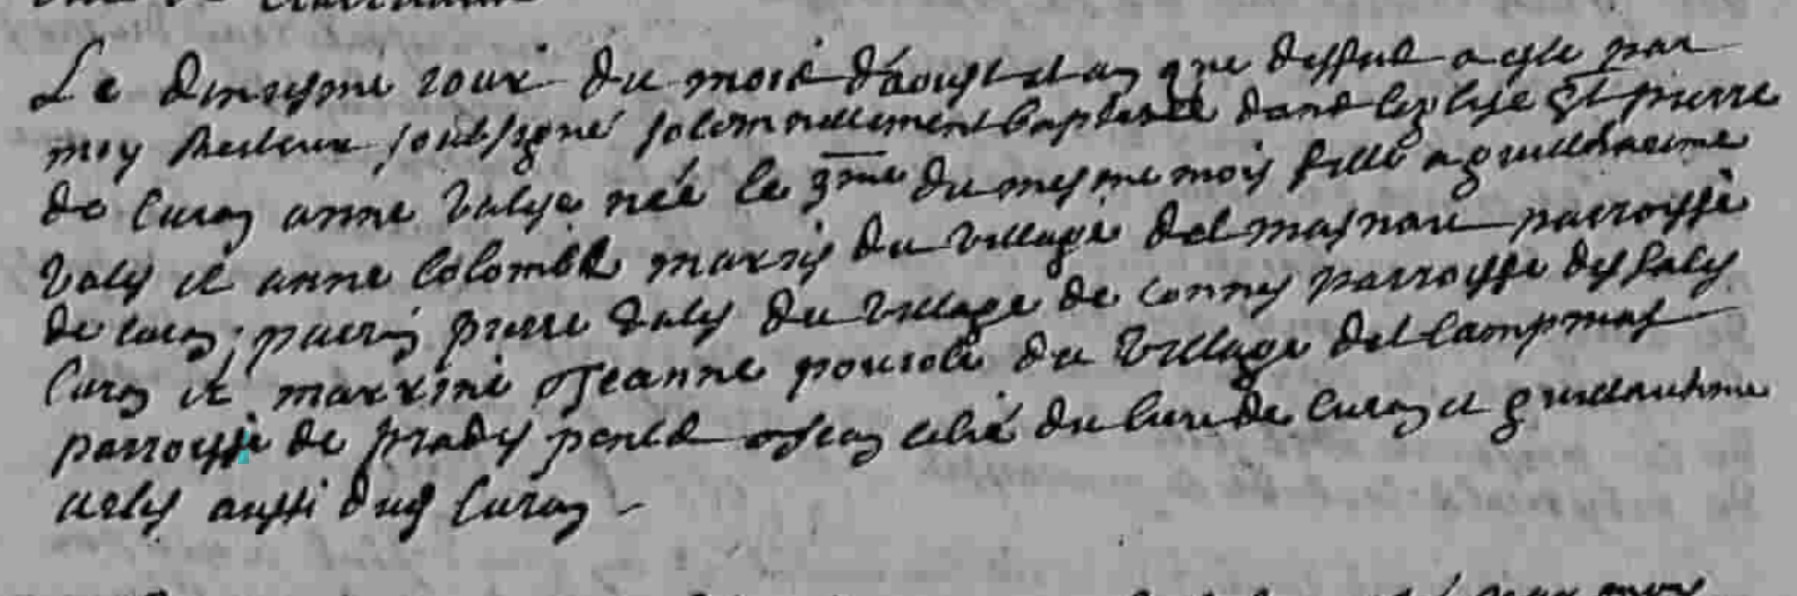 Le dixiesme jour du mois d'aoust et an que dessus a este par
moy Recteur soubsigné solemnellement baptisée dans leglise St pierre
de Curan anne Valys née le 9me du mesme mois fille a guillhaume
Valy et anne Colombe mariés du village del masnau parroisse
de Curan; parrin pierre Valy du village de Connes parroisse des Saly
Curan et marrine Jeanne pouiole du village del Campmas
parroisse de prades du cure de Curan et guillauhme
aussi dud Curan